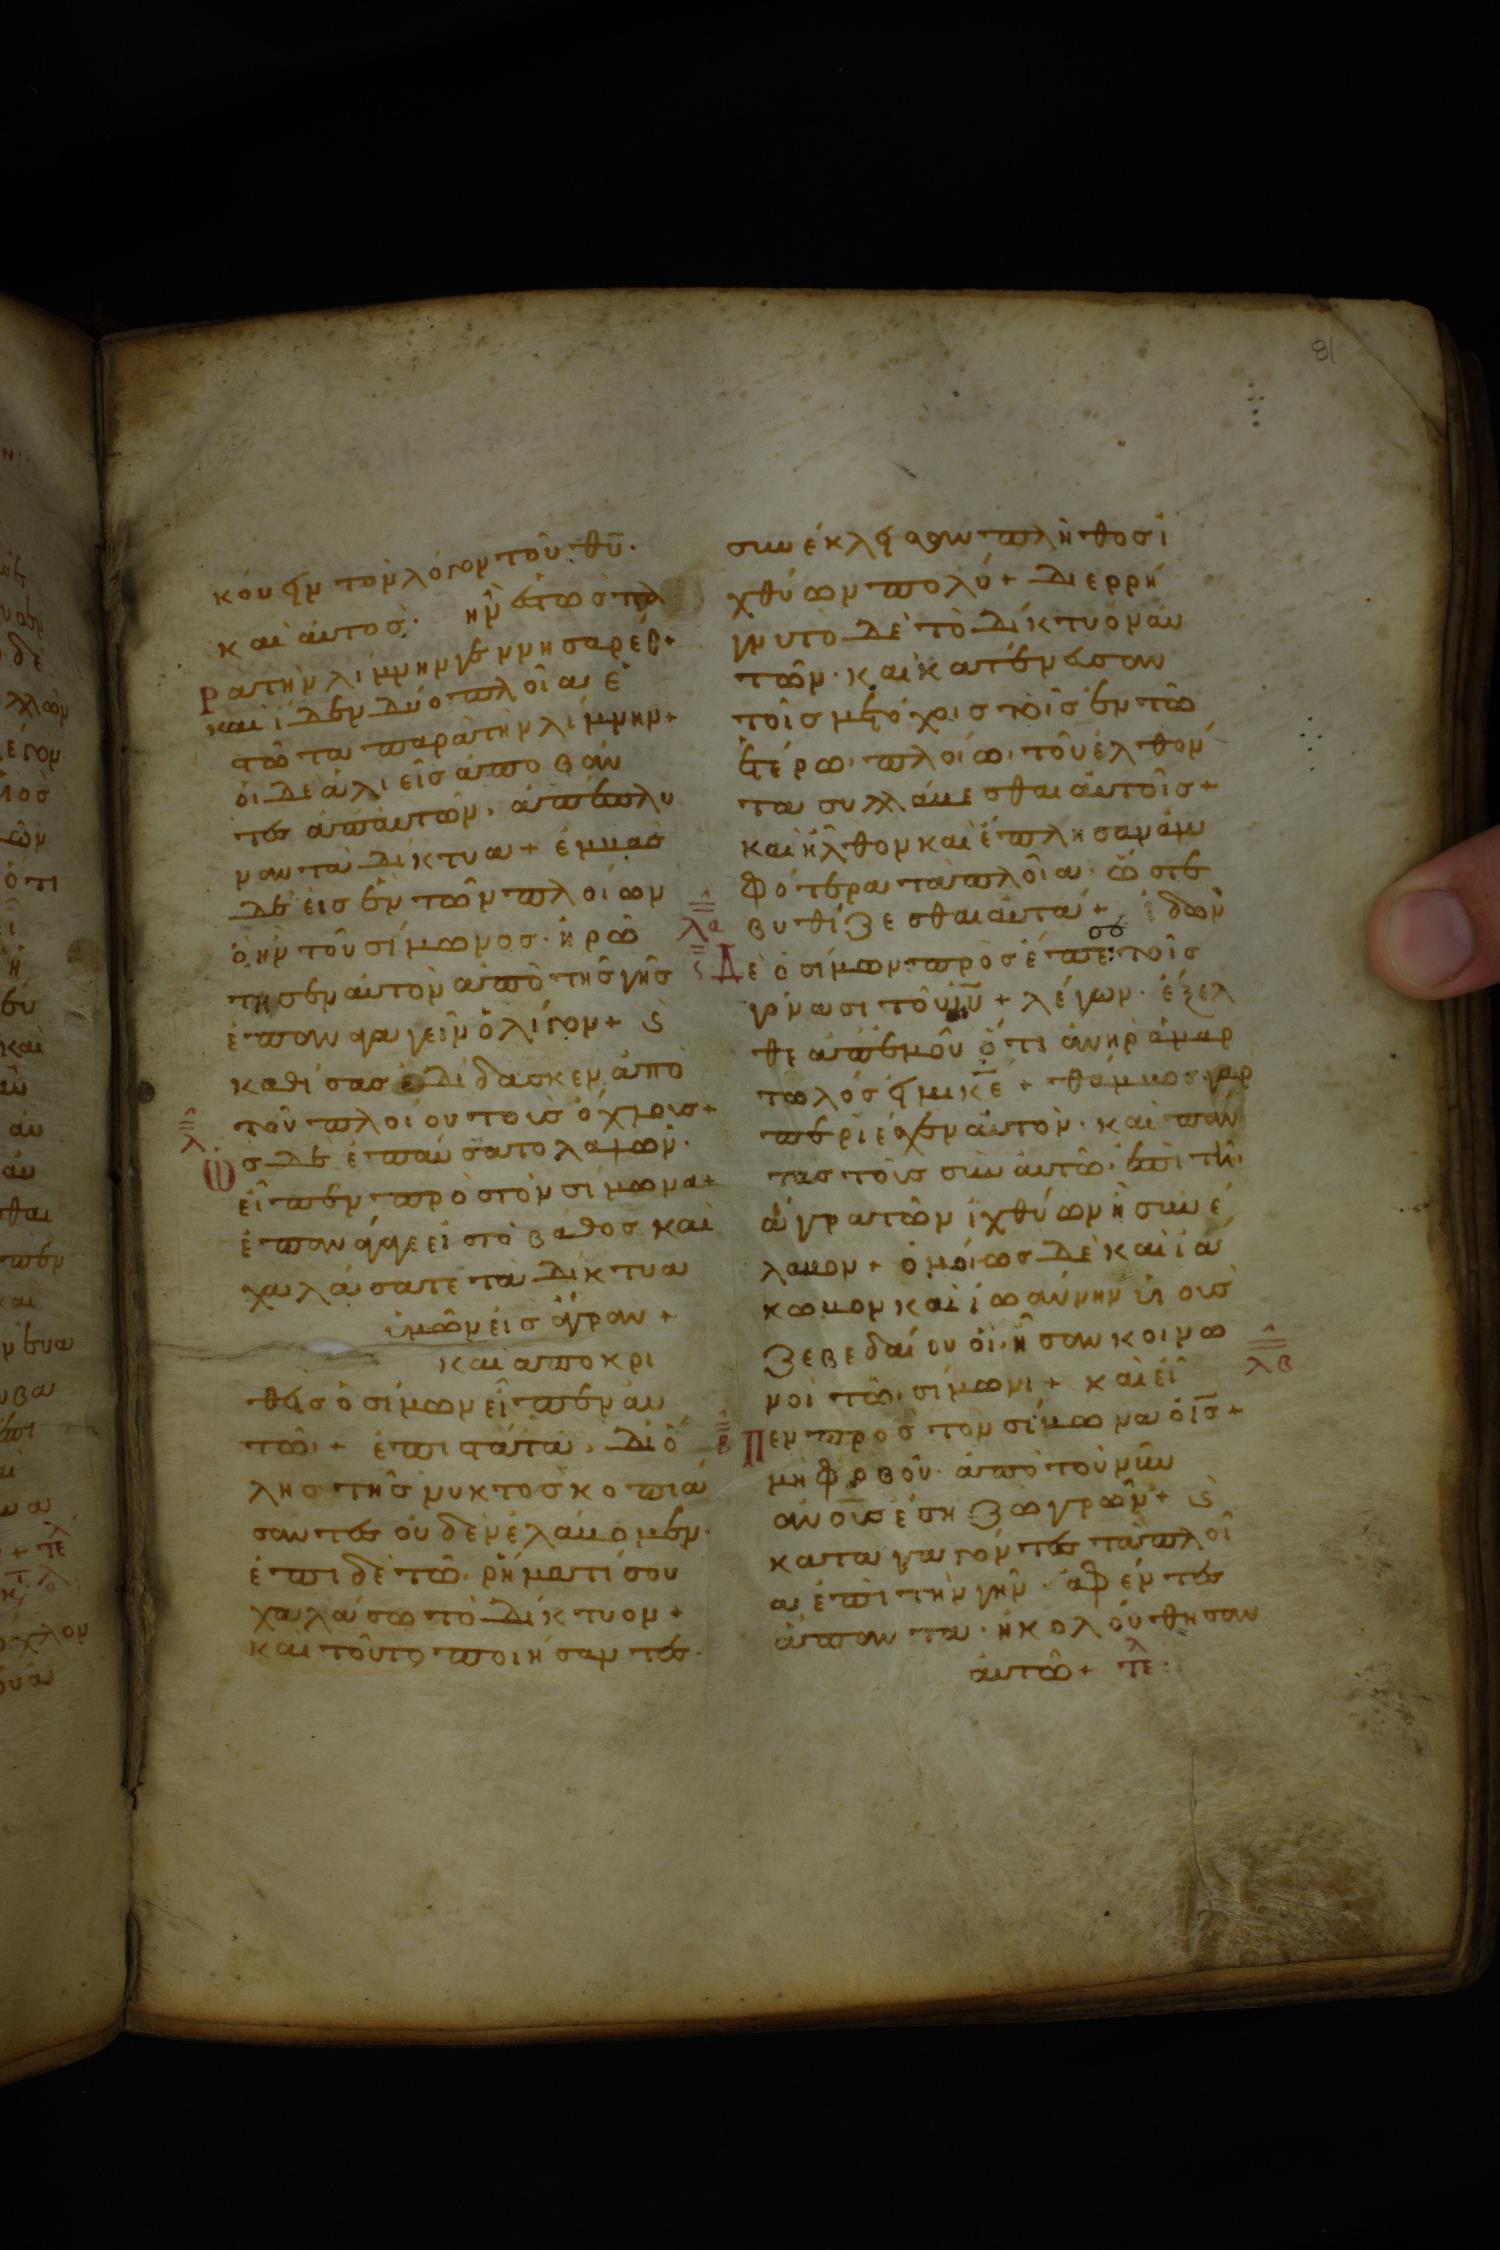 81
κούειν τὸν λόγον τοῦ θ̅υ̅·
καὶ ἀυτὸσ· ἦν ἑστὼσ πα
ρατὴν λίμνην γεννησαρέτ+
καὶ ἴδεν δύο πλοῖα ἑ
στῶτα παρὰ τὴν λίμνην+
ὁι δὲ ἁλιεῖσ ἀποβάν
τεσ ἀπ ἀυτῶν, ἀπέπλυ
ναν τὰ δίκτυα+ ἐμβὰσ
δὲ εἰσ ἓν τῶν πλοίων
ὃ ἦν τοῦ σίμωνοσ· ἠρώ
τησεν ἀυτὸν ἀπὸ τῆσ γῆσ
ἐπαναγαγεῖν ὀλίγον+ ϛ̀
καθίσασ ἐδίδασκεν ἀπὸ
τοῦ πλοίου τοὺσ ὄχλουσ+
λ
Ὡσ δὲ ἐπαύσατο λαλῶν·
εἶπεν πρὸσ τὸν σίμωνα+
ἐπανάγαγε εἰσ τὸ βάθοσ καὶ
χαλάσατε τὰ δίκτυα
ὑμῶν εἰσ ἄγραν +
καὶ ἀποκρι
θεὶσ ὁ σίμων εἶπεν ἀυ
τῶ + ἐπιστάτα, δι ὅ
λησ τῆσ νυκτὸσ κοπιά
σαντεσ οὐδὲν ἐλάβομεν·
ἐπὶ δὲ τῶ ῥήματί σου
χαλάσω τὸ δίκτυον+
καὶ τοῦτο ποιήσαντεσ·
συνέκλεισαν πλῆθοσ ἰ
χθύων πολύ+ διερρή
γνυτο δὲ τὸ δίκτυον ἀυ
τῶν· καὶ κατένευσαν
τοῖσ μετόχοισ τοῖσ ἐν τῶ
ἑτέρω πλοίω· τοῦ ἐλθόν
τασ συλλαβέσθαι ἀυτοῖσ+
καὶ ἦλθον καὶ ἔπλησαν ἀμ
φότερα τὰ πλοῖα· ὥστε
βυθίζεσθαι ἀυτά+ ἰδὼν
λα
ϛ Δὲ ὁ σίμων προσέπεσε τοῖσ
γόνασι τοῦ ι̅υ̅+ λέγων· ἔξελ
θε ἀπ ἐμοῦ ὅτι ἀνὴρ ἁμαρ
τωλόσ εἰμι κ̅ε̅ + θάμβοσ γὰρ
περιέσχεν ἀυτόν· καὶ πάν
τασ τοὺσ σὺν ἀυτῶ· ἐπὶ τῆ
ἄγρα τῶν ἰχθύων ἧ συνέ
λαβον+ ὁμοίωσ δὲ καὶ ἰά
κωβον καὶ ἰωάννην υἱοὺσ
ζεβεδαίου ὃι ἦσαν κοινω
λβ
νοὶ τῶ σίμωνι+ καὶ εἶ
β Πεν πρὸσ τὸν σίμωνα ὁ ι̅σ̅+
μὴ φοβοῦ· ἀπὸ τοῦ νῦν
ἀν̅ουσ ἔση ζωγρῶν+ ϛ̀
καταγαγόντεσ τὰ πλοῖ
α ἐπὶ τὴν γῆν· ἀφέντεσ
ἅπαντα· ἠκολούθησαν
ἀυτῶ+ τε̅λ: